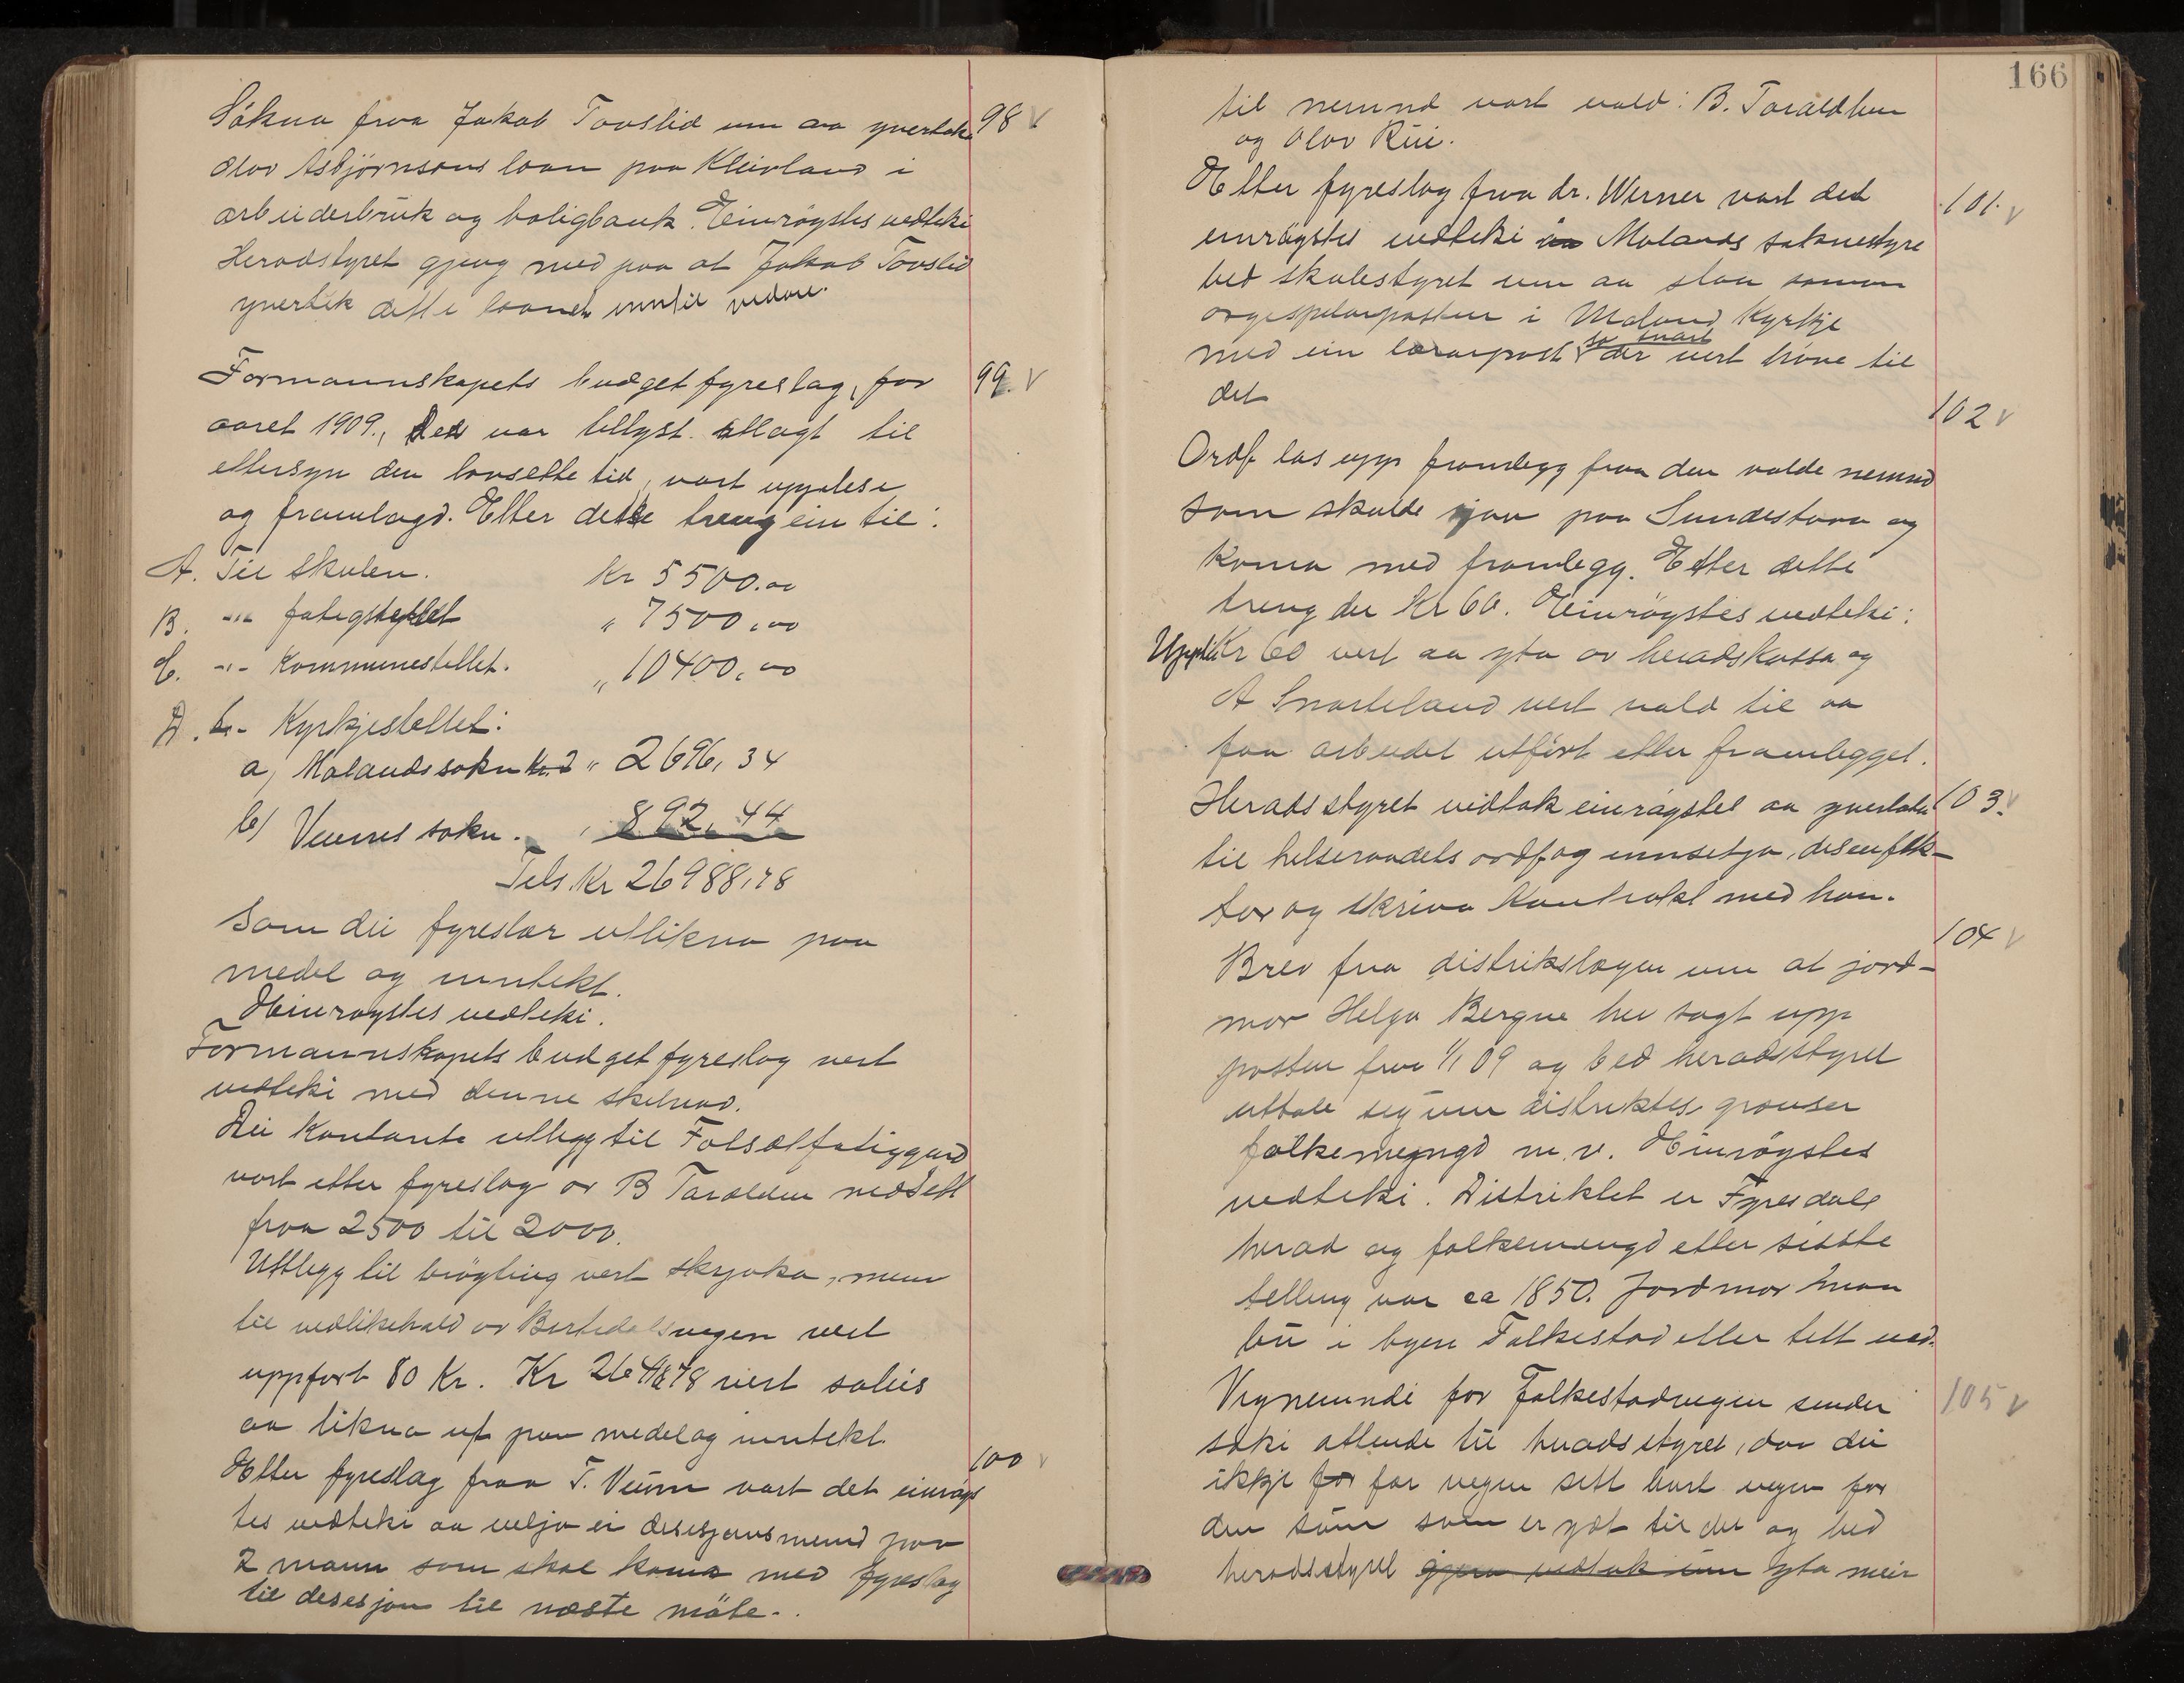 Sökna fraa Jakob Tovslid um aa yvertaka 98
Olov Asbjörnsons loan paa Kleivland i
arbeiderbruk og boligbank. Einrögstes vedteki
Heradstyret gjeng med paa at Jakob Tovslid
yvertek dette laanet inntil vidare.
Formannskapets budgetfyreslag, for 99.
aaret 1909., Det var utlyst. utlagt til
ettersyn den lovsette tid, vart upplese
og framlagd. Etter dette treng ein til:
A. Til skulen. Kr 5500.00
B. -"- fatigstellet " 7500,00
C. -"- Kommunestellet. " 10400,00
D. -"- Kyrkjestellet:
a, Molands sokn " 2696,34
b) Veums sokn. " 892,44
Tels. Kr 26988,78
Som dei fyreslær utlikna paa
medel og inntekt.
Einrögstes vedteki.
Formannskapets budgetfyreslag vert
vedteki med denne skilnad.
Dei Kontante utlegg til Folsælfatiggard
vart etter fyreslag av B Taraldsen nedsett
fraa 2500 til 2000.
Utlegg til bröyting vert strjoka, men
til vedlikehald av Birtedalsvegen vert
uppfört 80 Kr. Kr 26468,78 vert soleis
aa likna ut paa medel og inntekt.
Etter fyreslag fraa T. Veum vart det einrögs 100
tes vedteki aa velja ei desisjonsnemnd paa
2 mann som skal koma med fyreslag
til desisjon til næste möte.
166
til nemnd vart vald: B. Taraldsen
og Olav Rui.
Etter fyreslag fraa dr. Werner vart det 101.
einrögstes vedteki Molands soknestyre
bed skulestyret um aa slaa saman
orgespelarposten i Moland Kyrkje
so snart
med ein lærarpost der vert höve til
det
102
Ordf. las upp framlegg fraa den valde nemnd
som skulde sjaa paa Sundestova og
koma med framlegg. Etter dette
treng der Kr 60. Einrögstes vedteki:
Upptil Kr 60 vert aa yta av heradskassa og
A Snarteland vert vald til aa
faa arbeidet utfört etter framlegget.
Heradsstyret vidtok einrögstes aa yverlata 103.
til helseraadets ordf. og innsetja, desenfek-
tor og skriva Kontrakt med han.
104
Brev fraa distrikslægen um at jord-
mor Helga Bergne hev sagt upp
posten fraa 1/1 09 og bed heradsstyret
uttale seg um distriktes grenser
folkemengd m.v. Einrögstes
vedteki. Distriktet er Fyresdals
herad og folkemengd etter sidste
telling var ca 1850. Jordmor maa
bu i byen Folkestad eller tett ved.
Vegnemndi for Folkestadvegen sender 105
saki attende til heradsstyret, daa dei
ikkje for far vegen sett burt vegen for
den sum som er ydt til det og bed
heradsstyret gjera vedtak um yta meir